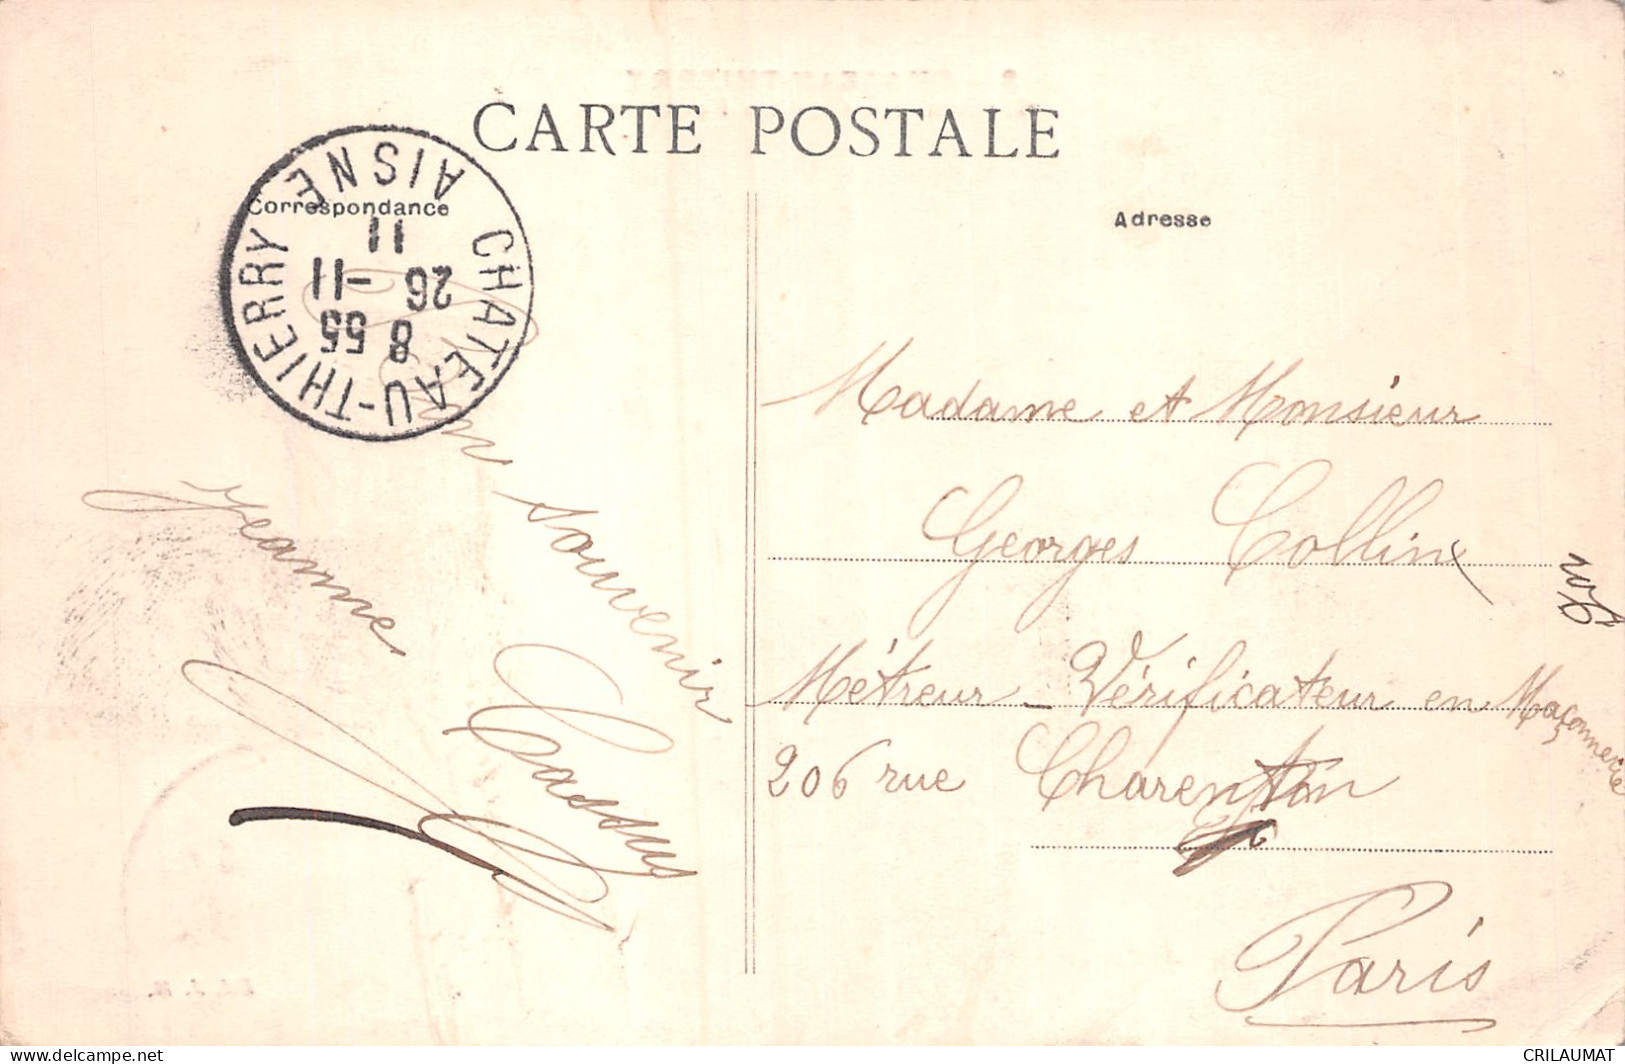 CARTE POSTALE
Correspondance
Adresse
CHATEAU-THIERRY AISNE
8 55
26 -11
11
souvenir
Jeanne
Cassus
Madame et Monsieur
Georges Collin
Métreur - Vérificateur en Maçonnerie
206 rue Charenton
Paris
delcampe.net
CRILAUMAT